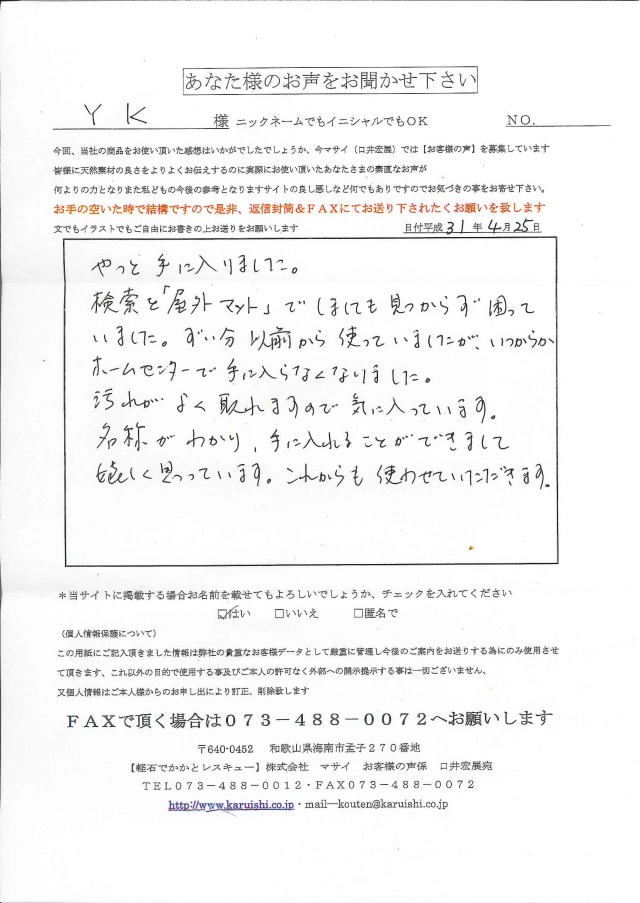 あなた様のお声をお聞かせ下さい
YK 様 ニックネームでもイニシャルでもOK NO.
今回、当社の商品をお使い頂いた感想はいかがでしたでしょうか、今マサイ（口井宏展）では【お客様の声】を募集しています
皆様に天然素材の良さをよりよくお伝えするのに実際にお使い頂いたあなたさまの素直なお声が
何よりの力となりまた私どもの今後の参考となりますサイトの良し悪しなど何でもありですのでお気づきの事をお寄せ下さい。
お手の空いた時で結構ですので是非、返信封筒＆FAXにてお送り下されたくお願いを致します
文でもイラストでもご自由にお書きの上お送りをお願いします 日付平成31年4月25日
やっと手に入りました。
検索を「屋外マット」でしましても見つからず困って
いました。ずい分以前から使っていましたが、いつからか
ホームセンターで手に入らなくなりました。
汚れがよく取れますので気に入っています。
名称がわかり、手に入れることができまして
嬉しく思っています。これからも使わせていただきます。
＊当サイトに掲載する場合お名前を載せてもよろしいでしょうか、チェックを入れてください
☑はい □いいえ □匿名で
（個人情報保護について）
この用紙にご記入頂きました情報は弊社の貴重なお客様データとして厳重に管理し今後のご案内をお送りする為にのみ使用させ
て頂きます、これ以外の目的で使用する事及びご本人の許可なく外部への開示提示する事は一切ございません、
又個人情報はご本人様からのお申し出により訂正、削除致します
FAXで頂く場合は073－488－0072へお願いします
〒640-0452 和歌山県海南市孟子270番地
【軽石でかかとレスキュー】株式会社 マサイ お客様の声係 口井宏展宛
TEL073－488－0012・FAX073－488－0072
http://www.karuishi.co.jp・mail—kouten@karuishi.co.jp